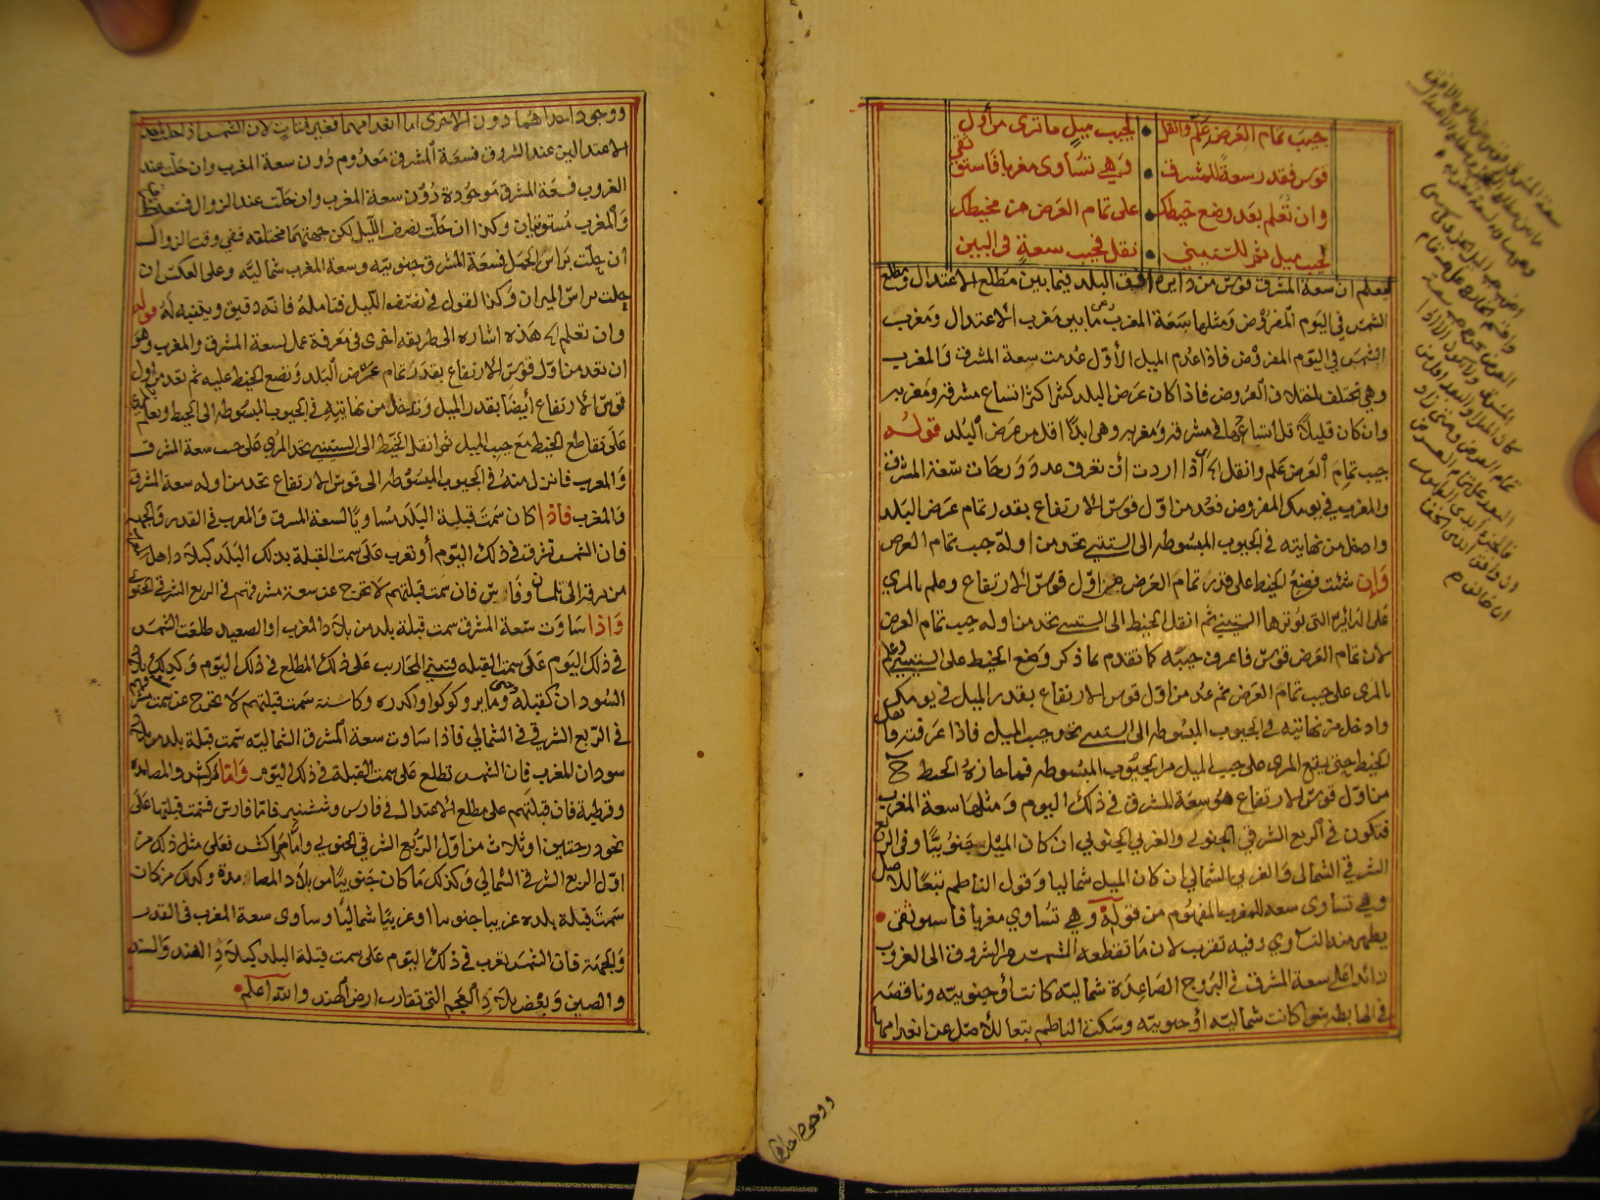 جيب تمام العرض علم وانقل • لجيب ميل ما ترى من أول
قوس فقدر سعة للمشرف • وهي تساوي مغربا فاستق
وان تعلم بعد وضع خيطك • على تمام العرض من محيطك
لجيب ميل ثم للستيني • نقل فجيب سعة في البين
ان سعة المشرق قوس من دايرة افق البلد فيما بين مطلع الاعتدال ومطلع
الشمس في اليوم المفروض ومثلها سعة المغرب ما بين مغرب الاعتدال ومغرب
الشمس في اليوم المفروض فاذا عدم الميل الأول عدمت سعة المشرق والمغرب
وهي تختلف باختلاف العروض فاذا كان عرض البلد كثيرا كثر اتساع مشرقه ومغربه
وان كان قليلا قل اتساعهما في مشرقه ومغربه وهي ابدا اقل من عرض البلد قوله
جيب تمام العرض علم وانقل اذا اردت أن تعرف عدد درجات سعة المشرق
والمغرب في يومك المفروض فعد من اول قوس الارتفاع بقدر تمام عرض البلد
وادخل من نهايته في الجيوب المبسوطه الى الستيني تجد من اوله جيب تمام العرض
وإن شئت فضع الخيط على قدر تمام العرض من اول قوس الارتفاع وعلم بالمري
على الدائرة التي يوترها الستيني ثم انقل الخيط الى الستيني تجد من اوله جيب تمام العرض
لان تمام العرض قوس فاعرف جيبه كما تقدم بما ذكر وضع الخيط على الستيني وعلم
بالمري على جيب تمام العرض ثم عد من اول قوس الارتفاع بقدر الميل في يومك
وادخل من نهايته في الجيوب المبسوطه الى الستيني تجد جيب الميل فاذا عرفته فانقل
الخيط حتى يقع المري على جيب الميل من الجيوب المبسوطه فما حازه الخيط ح
من اول قوس الارتفاع هو سعة المشرق في ذلك اليوم ومثلها سعة المغرب
فتكون في الربع الشرقي الجنوبي والغربي الجنوبي ان كان الميل جنوبيا وفي الربع
الشرقي الشمالي والغربي الشمالي ان كان الميل شماليا وقول الناظم تبعا للاصل
وهي تساوي سعة المغرب المفهوم من قوله وهي تساوي مغربا فاستوثق •
يظهر منه التساوي وفيه تقريب لان ما تقطعه الشمس من الشروق الى الغروب
زائد اعلى سعة المشرق في البروج الصاعدة شماليه كانت أو جنوبيه وناقصه
في الهابطه سواء كانت شماليه أو جنوبيه وسكت الناظم تبعا للأصل عن انعدامهما
ووجود احداهما
ووجود احداهما دون الاخرى اما انعدامهما فغير ثابت لان الشمس اذا حلت
الاعتدالين عند الشروق فسعة المشرق معدوم دون سعة المغرب وان حلت عند
الغروب فسعة المشرق موجودة دون سعة المغرب وان حلت عند الزوال فسعة
والمغرب مستويتان وكذا ان حلت نصف الليل لكن جهتهما مختلفه ففي وقت الزوال
ان حلت براس الحمل فسعة المشرق جنوبيه وسعة المغرب شماليه وعلى العكس ان
حلت براس الميزان وكذا القول في نصف الليل فتامله فانه دقيق وينبه له قوله
وان تعلم هذه اشاره الى طريقه اخرى في معرفة عمل سعة المشرق والمغرب وهو
ان تعد من اول قوس الارتفاع بقدر تمام عرض البلد وتضع الخيط عليه ثم تعد من اول
قوس الارتفاع أيضا بقدر الميل وتدخل من نهايته في الجيوب المبسوطه الى الخيط وتعلم
على تقاطع الخيط مع جيب الميل ثم انقل الخيط الى الستيني تجد المري على جيب سعة المشرق
والمغرب فانزل منه في الجيوب المبسوطه الى قوس الارتفاع تجد من اوله سعة المشرق
والمغرب فاذا كان سمت قبلة البلد مساويا لسعة المشرق والمغرب في القدر والجهة
فان الشمس تشرق في ذلك اليوم أو تغرب على سمت القبلة بذلك البلد كبلاد اهل
من برقة الى تلمسان وفاس فان سمت قبلتهم لا تخرج عن سعة مشرقهم في الربع الشرقي الجنوبي
واذا ساوت سعة المشرق سمت قبلة بلد من بلاد المغرب او الصعيد طلعت الشمس
في ذلك اليوم على سمت القبله فتبنى المحارب على ذلك المطلع في ذلك اليوم وكذلك بلاد
السودان كقبلة وكوكوا وكاشنه سمت قبلتهم لا تخرج عن سمت
في الربع الشرقي في الشمالي فاذا ساوت سعة المشرق الشماليه سمت قبلة بلد من بلاد
سودان المغرب فان الشمس تطلع على سمت القبلة في ذلك اليوم واما مراكش والمصامده
وقرطبة فان قبلتهم على مطلع الاعتدال في فارس فاما فارس فسمت قبلتها على
نحو درجتين او ثلاث من اول الربع الشرقي الجنوبي واما مراكش فعلى مثل ذلك من
اول الربع الشرقي الشمالي وكذلك ما كان جنوبيا من بلاد المصامدة وكذلك من كان
سمت قبلة بلده غربيا جنوبيا او غربيا شماليا وساوى سعة المغرب في القدر
والجهة فان الشمس تغرب في ذلك اليوم على سمت قبلة البلد كبلاد الهند والسند
والصين وبعض بلاد العجم التي تقارب ارض الهند والله اعلم •